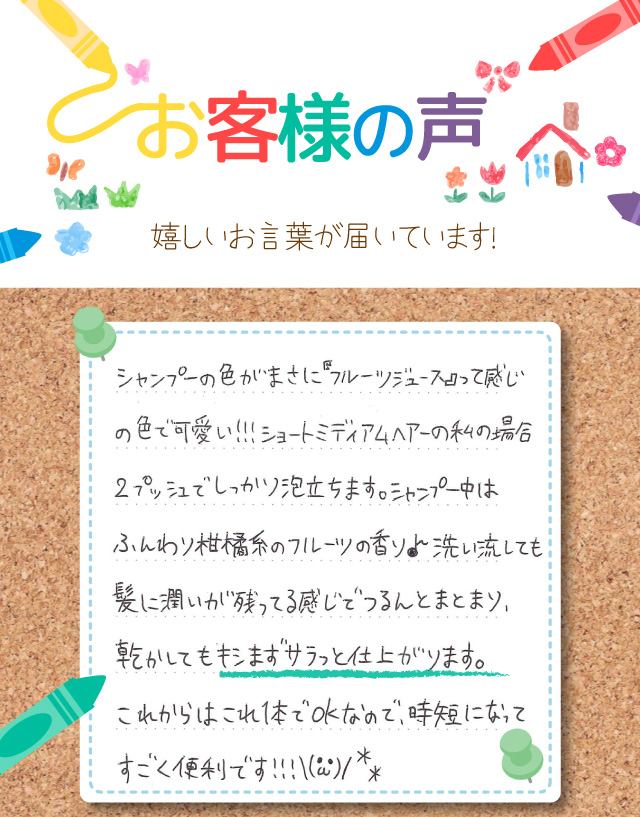 お客様の声
嬉しいお言葉が届いています!
シャンプーの色がまさに『フルーツジュース』って感じ
の色で可愛い!!!ショートミディアムヘアーの私の場合
2プッシュでしっかり泡立ちます。シャンプー中は
ふんわり柑橘系のフルーツの香り♪洗い流しても
髪に潤いが残ってる感じでつるんとまとまり、
乾かしてもキシまずサラっと仕上がります。
これからはこれ1本でOKなので、時短になって
すごく便利です!!!\(^ω^)/**